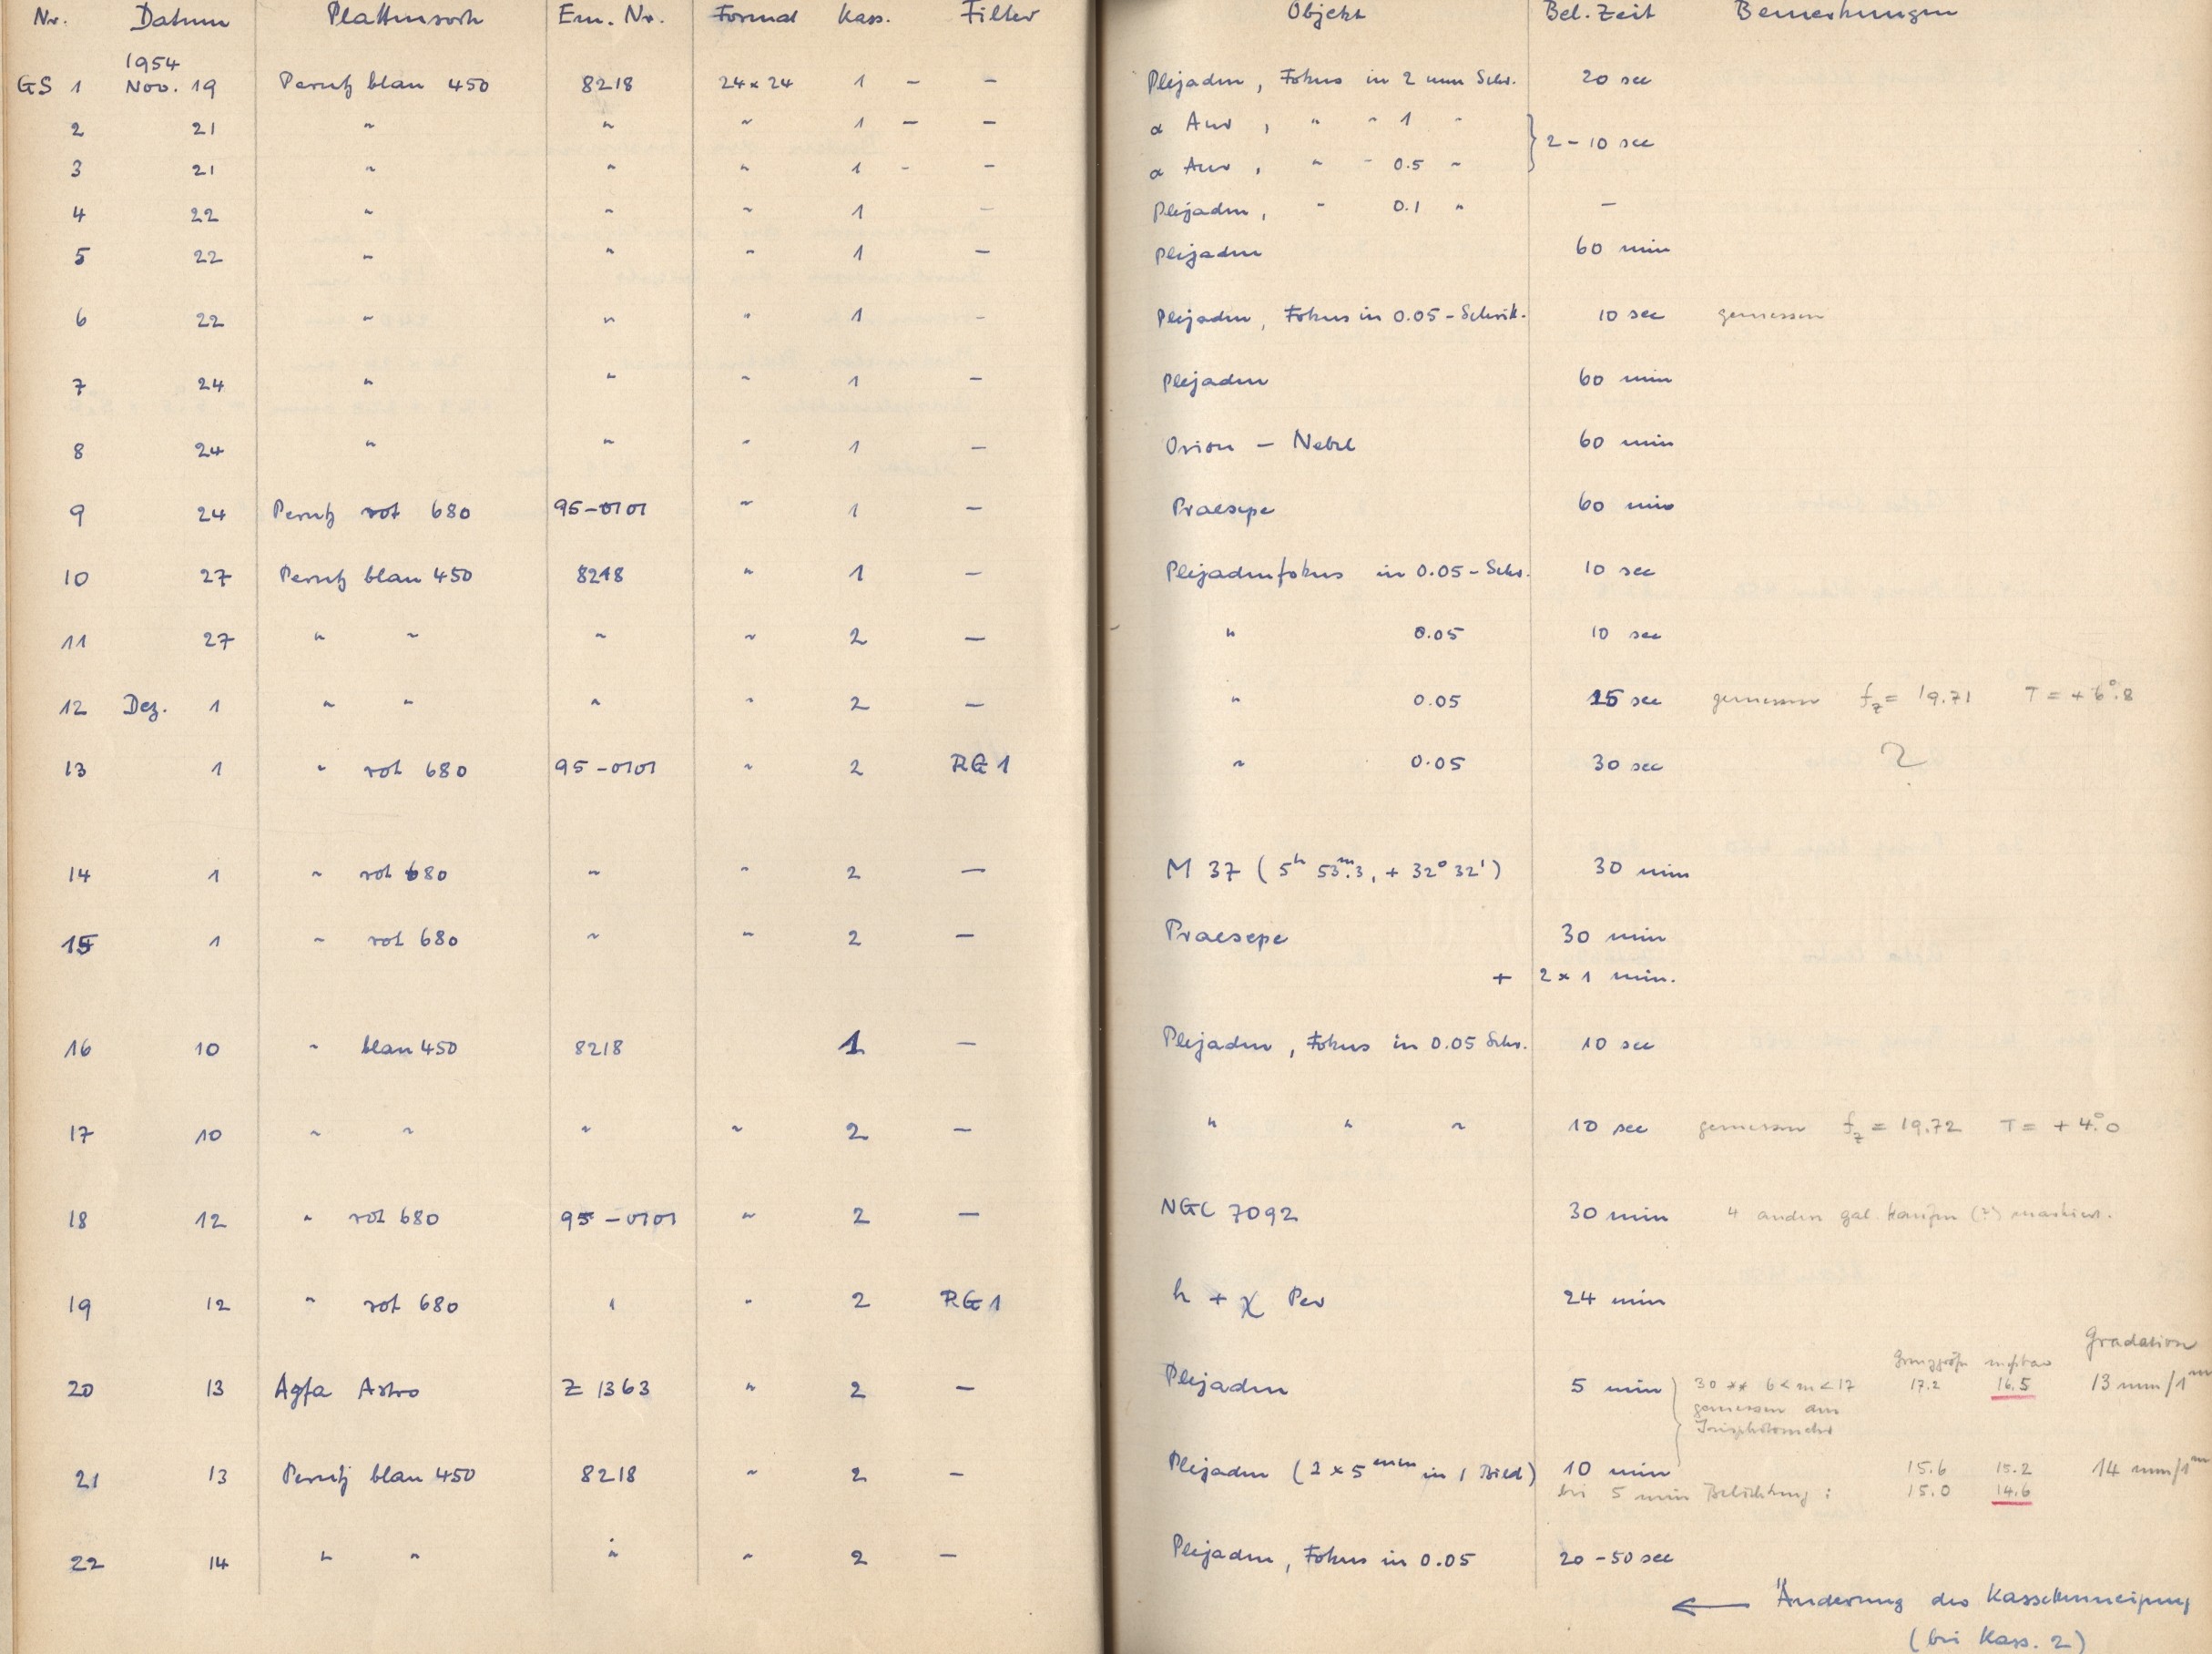 Nr. Datum Plattensorte Em. Nr. Format Kass. Filter Objekt Bel. Zeit Bemerkungen
1954
GS 1 Nov. 19 Perutz blau 450 8218 24 x 24 1 – – Plejaden, Fokus in 2 mm Schr. 20 sec
2 21 " " " 1 – – α Aur, " " 1 "
} 2 – 10 sec
3 21 " " " 1 - – α Aur, " " 0.5 "
4 22 " " " 1 – Plejaden, " 0.1 " –
5 22 " " " 1 – Plejaden 60 min
6 22 " " " 1 – Plejaden, Fokus in 0.05 - Schritt. 10 sec gemessen
7 24 " " " 1 – Plejaden 60 min
8 24 " " " 1 – Orion – Nebel 60 min
9 24 Perutz rot 680 95-0101 " 1 – Praesepe 60 min
10 27 Perutz blau 450 8218 " 1 – Plejadenfokus in 0.05 - Schr. 10 sec
11 27 " " " " 2 – " 0.05 10 sec
12 Dez. 1 " " " " 2 – " 0.05 15 sec gemessen f_z = 19.71 T = + 6°.8
13 1 " rot 680 95-0101 " 2 RG 1 " 0.05 30 sec ?
14 1 " rot 680 " " 2 – M 37 ( 5h 53m.3, + 32° 32' ) 30 min
15 1 " rot 680 " " 2 – Praesepe 30 min
+ 2 x 1 min.
16 10 " blau 450 8218 1 – Plejaden, Fokus in 0.05 Schr. 10 sec
17 10 " " " " 2 – " " " 10 sec gemessen f_z = 19.72 T = + 4°.0
18 12 " rot 680 95-0101 " 2 – NGC 7092 30 min 4 andere gal. Haufen (?) markiert.
19 12 " rot 680 " " 2 RG 1 h + χ Per 24 min
Gradation
Grenzgröße meßbar
20 13 Agfa Astro Z 1363 " 2 – Plejaden 5 min } 30 ** 6 < m < 17 17.2 16.5 13 mm/1m
gemessen am
Irisphotometer
21 13 Perutz blau 450 8218 " 2 – Plejaden (2 x 5 min in 1 Bild) 10 min 15.6 15.2 14 mm/1m
bei 5 min Belichtung : 15.0 14.6
22 14 " " " " 2 – Plejaden, Fokus in 0.05 20 - 50 sec
← Änderung der Kassettenneigung
(bei Kass. 2)